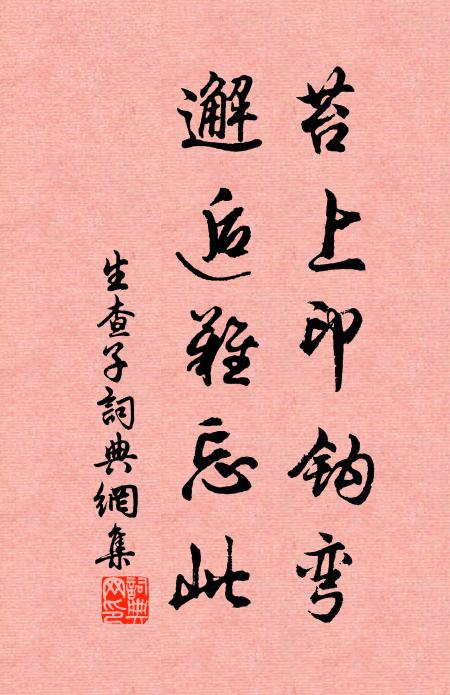 苔上印钩弯
邂逅難忘此
生查子詞典網集
詞典网印